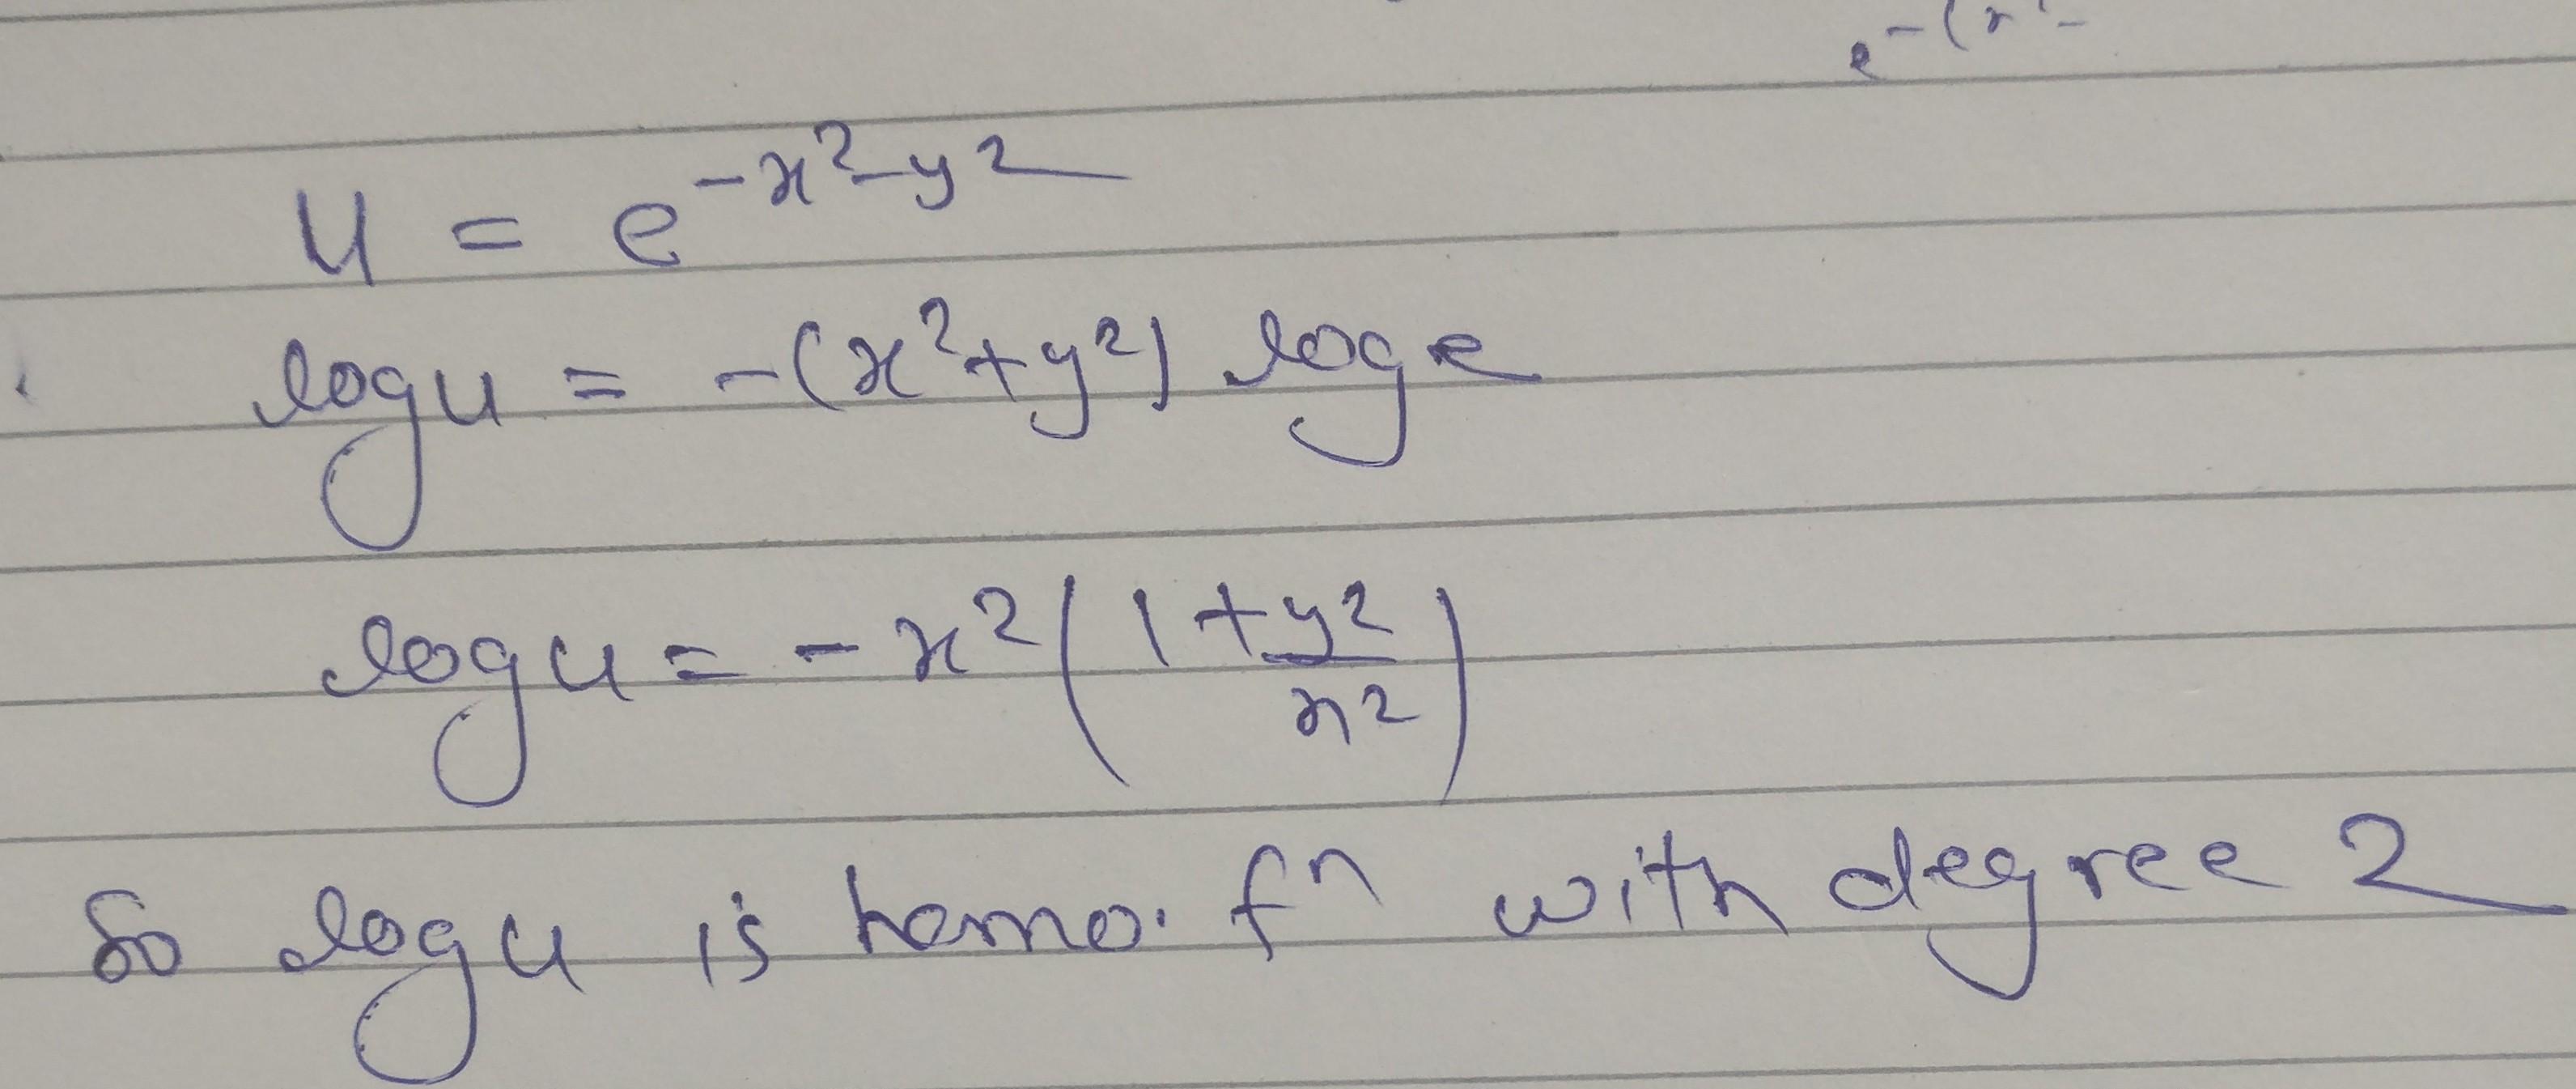 e^-(x²-
u = e^-x²-y²
log u = -(x²+y²) log e
log u = -x²(1+y²/x²)
So log u is homo. fⁿ with degree 2